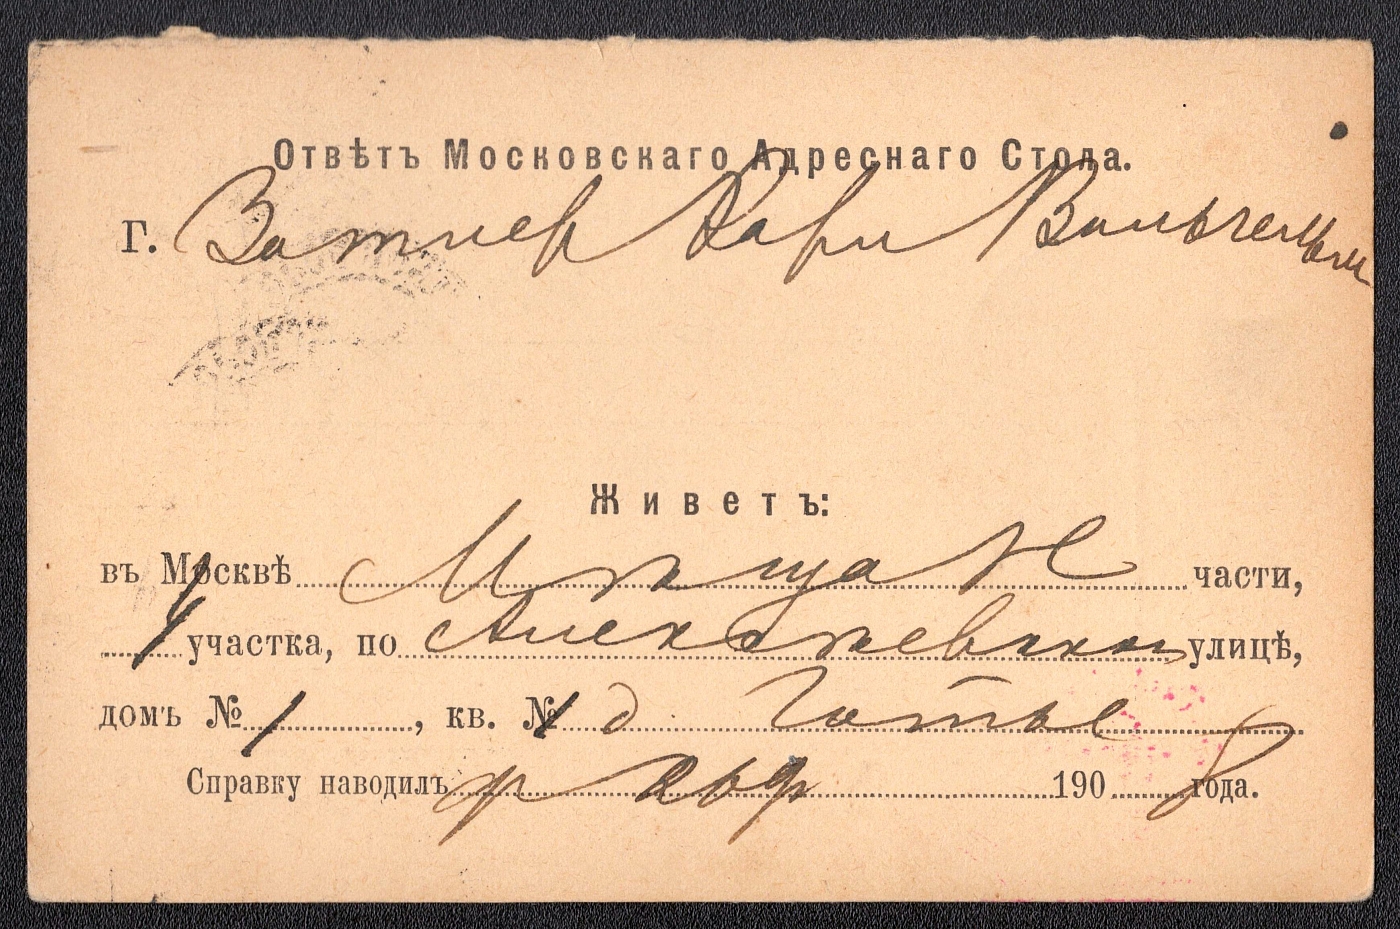 Отвѣтъ Московскаго Адреснаго Стола.
Г. Затлер Карл Вильгельм
Живетъ:
въ Москвѣ Мѣщан части,
1 участка, по Алексѣевской улицѣ,
домъ № 1, кв. № д Готье
Справку наводилъ 1908 года.